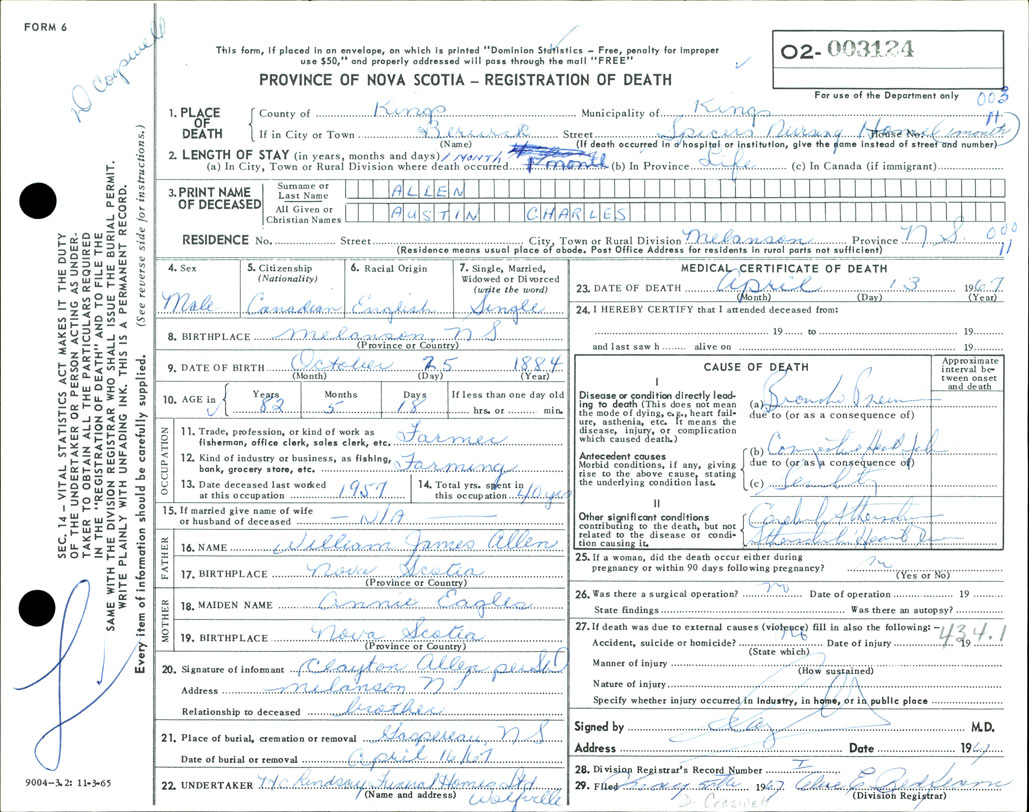 FORM 6
D Cogswell
This form, if placed in an envelope, on which is printed "Dominion Statistics - Free, penalty for improper
use $50," and properly addressed will pass through the mail "FREE"
PROVINCE OF NOVA SCOTIA - REGISTRATION OF DEATH
O2- 003124
For use of the Department only
003
11
1. PLACE OF DEATH
County of Kings Municipality of Kings
If in City or Town Berwick Street Nursing Home House No. (1 month)
(Name) (If death occurred in a hospital or institution, give the name instead of street and number)
2. LENGTH OF STAY (in years, months and days) 1 MONTH
(a) In City, Town or Rural Division where death occurred 1 month (b) In Province Life (c) In Canada (if immigrant)
3. PRINT NAME OF DECEASED
Surname or Last Name ALLEN
All Given or Christian Names AUSTIN CHARLES
RESIDENCE No. Street City, Town or Rural Division Melanson Province N S
000
11
(Residence means usual place of abode. Post Office Address for residents in rural parts not sufficient)
4. Sex Male
5. Citizenship (Nationality) Canadian
6. Racial Origin English
7. Single, Married, Widowed or Divorced (write the word) Single
8. BIRTHPLACE Melanson, N S
(Province or Country)
9. DATE OF BIRTH October 25 1884
(Month) (Day) (Year)
10. AGE in Years 82 Months 5 Days 18 If less than one day old hrs. or min.
OCCUPATION
11. Trade, profession, or kind of work as
fisherman, office clerk, sales clerk, etc. Farmer
12. Kind of industry or business, as fishing,
bank, grocery store, etc. Farming
13. Date deceased last worked
at this occupation 1957
14. Total yrs. spent in
this occupation 40 yrs
15. If married give name of wife
or husband of deceased - N/A -
FATHER
16. NAME William James Allen
17. BIRTHPLACE Nova Scotia
(Province or Country)
MOTHER
18. MAIDEN NAME Annie Eagles
19. BIRTHPLACE Nova Scotia
(Province or Country)
20. Signature of informant Clayton Allen per
Address Melanson N S
Relationship to deceased brother
21. Place of burial, cremation or removal Gaspereau, N S
Date of burial or removal April 16/67
22. UNDERTAKER Lindsay Funeral Home Ltd
(Name and address) Wolfville
MEDICAL CERTIFICATE OF DEATH
23. DATE OF DEATH April 13 1967
(Month) (Day) (Year)
24. I HEREBY CERTIFY that I attended deceased from:
19 to 19
and last saw h alive on 19
CAUSE OF DEATH
Approximate interval between onset and death
I
Disease or condition directly leading to death (This does not mean the mode of dying, e.g., heart failure, asthenia, etc. It means the disease, injury, or complication which caused death.)
(a) Broncho Pneum
due to (or as a consequence of)
Antecedent causes
Morbid conditions, if any, giving rise to the above cause, stating the underlying condition last.
(b) Congestive Heart Fail
due to (or as a consequence of)
(c) Senility
II
Other significant conditions
contributing to the death, but not related to the disease or condition causing it.
25. If a woman, did the death occur either during
pregnancy or within 90 days following pregnancy?
(Yes or No)
26. Was there a surgical operation? no Date of operation 19
State findings Was there an autopsy?
27. If death was due to external causes (violence) fill in also the following:-
434.1
Accident, suicide or homicide? no Date of injury 19
(State which)
Manner of injury
(How sustained)
Nature of injury
Specify whether injury occurred in industry, in home, or in public place
Signed by M.D.
Address Date 1967
28. Division Registrar's Record Number I
29. Filed May 1967
(Division Registrar)
SEC. 14 - VITAL STATISTICS ACT MAKES IT THE DUTY
OF THE UNDERTAKER OR PERSON ACTING AS UNDER-
TAKER TO OBTAIN ALL THE PARTICULARS REQUIRED
IN THE "REGISTRATION OF DEATH" AND TO FILE THE
SAME WITH THE DIVISION REGISTRAR WHO SHALL ISSUE THE BURIAL PERMIT.
WRITE PLAINLY WITH UNFADING INK. THIS IS A PERMANENT RECORD.
Every item of information should be carefully supplied. (See reverse side for instructions.)
9004-3.2: 11-3-65